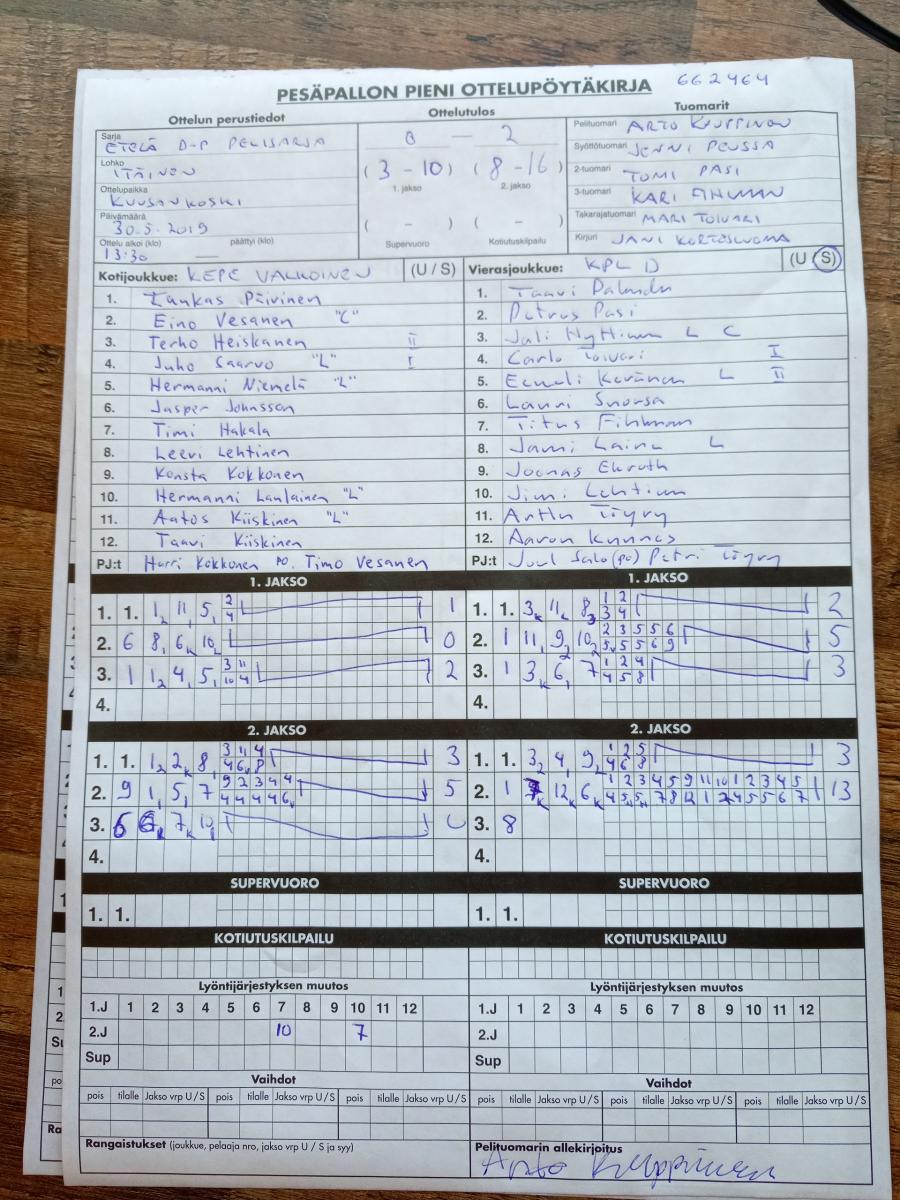 PESÄPALLON PIENI OTTELUPÖYTÄKIRJA 662464
Ottelun perustiedot Ottelutulos Tuomarit
Sarja ETELÄ D-P PELISARJA
Lohko ITÄINEN
Ottelupaikka KUUSANKOSKI
Päivämäärä 30.5.2019
Ottelu alkoi (klo) 13:30 päättyi (klo) —
0 — 2
(3 - 10) (8 - 16)
1. jakso 2. jakso
( - ) ( - )
Supervuoro Kotiutuskilpailu
Pelituomari ARTO
Syöttötuomari JENNI PEUSSA
2-tuomari TOMI PASI
3-tuomari KARI FIHLMAN
Takarajatuomari MARI TOIVARI
Kirjuri JANI KORTESLUOMA
Kotijoukkue: KEPE VALKOINEN (U / S)
1. Päivinen
2. Eino Vesanen "C"
3. Terho Heiskanen II
4. Juho Saarvo "L" I
5. Hermanni Niemelä "L"
6. Jasper Johnsson
7. Timi Hakala
8. Leevi Lehtinen
9. Konsta Kokkonen
10. Hermanni Laulainen "L"
11. Aatos Kiiskinen "L"
12. Taavi Kiiskinen
PJ:t Harri Kokkonen po. Timo Vesanen
Vierasjoukkue: KPL D (U / S)
1. Taavi
2. Petrus Pasi
3. L C
4. Carlo Toivari I
5. Eemeli Keränen L II
6. Lauri Snorsa
7. Titus Fihlman
8. Jami Laine L
9. Joonas Ekroth
10. Jimi Lehtinen
11. Arttu Töyry
12. Aaron Kynnäs
PJ:t Salo (po) Petri Töyry
1. JAKSO 1. JAKSO
1. 1. 1 2 11 5 2 4 1
2. 6 8 6 10 0
3. 1 1 4 5 3 11 10 4 2
4.
1. 1. 3 11 8 1 2 3 4 2
2. 1 11 9 10 2 3 5 5 6 5 5 5 6 9 5
3. 1 3 6 7 1 2 4 4 5 8 3
4.
2. JAKSO 2. JAKSO
1. 1. 1 2 8 3 11 4 4 6 8 3
2. 9 1 5 7 9 2 3 4 4 4 4 4 4 6 5
3. 6 6 7 10 0
4.
1. 1. 3 4 9 1 2 5 4 6 8 3
2. 1 12 6 1 2 3 4 5 9 11 10 1 2 3 4 5 4 5 5 7 8 12 1 2 4 5 5 6 7 13
3. 8
4.
SUPERVUORO SUPERVUORO
1. 1. 1. 1.
KOTIUTUSKILPAILU KOTIUTUSKILPAILU
Lyöntijärjestyksen muutos Lyöntijärjestyksen muutos
1.J 1 2 3 4 5 6 7 8 9 10 11 12 1.J 1 2 3 4 5 6 7 8 9 10 11 12
2.J 10 7 2.J
Sup Sup
Vaihdot Vaihdot
pois tilalle Jakso vrp U/S pois tilalle Jakso vrp U/S pois tilalle Jakso vrp U/S pois tilalle Jakso vrp U/S
Rangaistukset (joukkue, pelaaja nro, jakso vrp U / S ja syy) Pelituomarin allekirjoitus
Arto